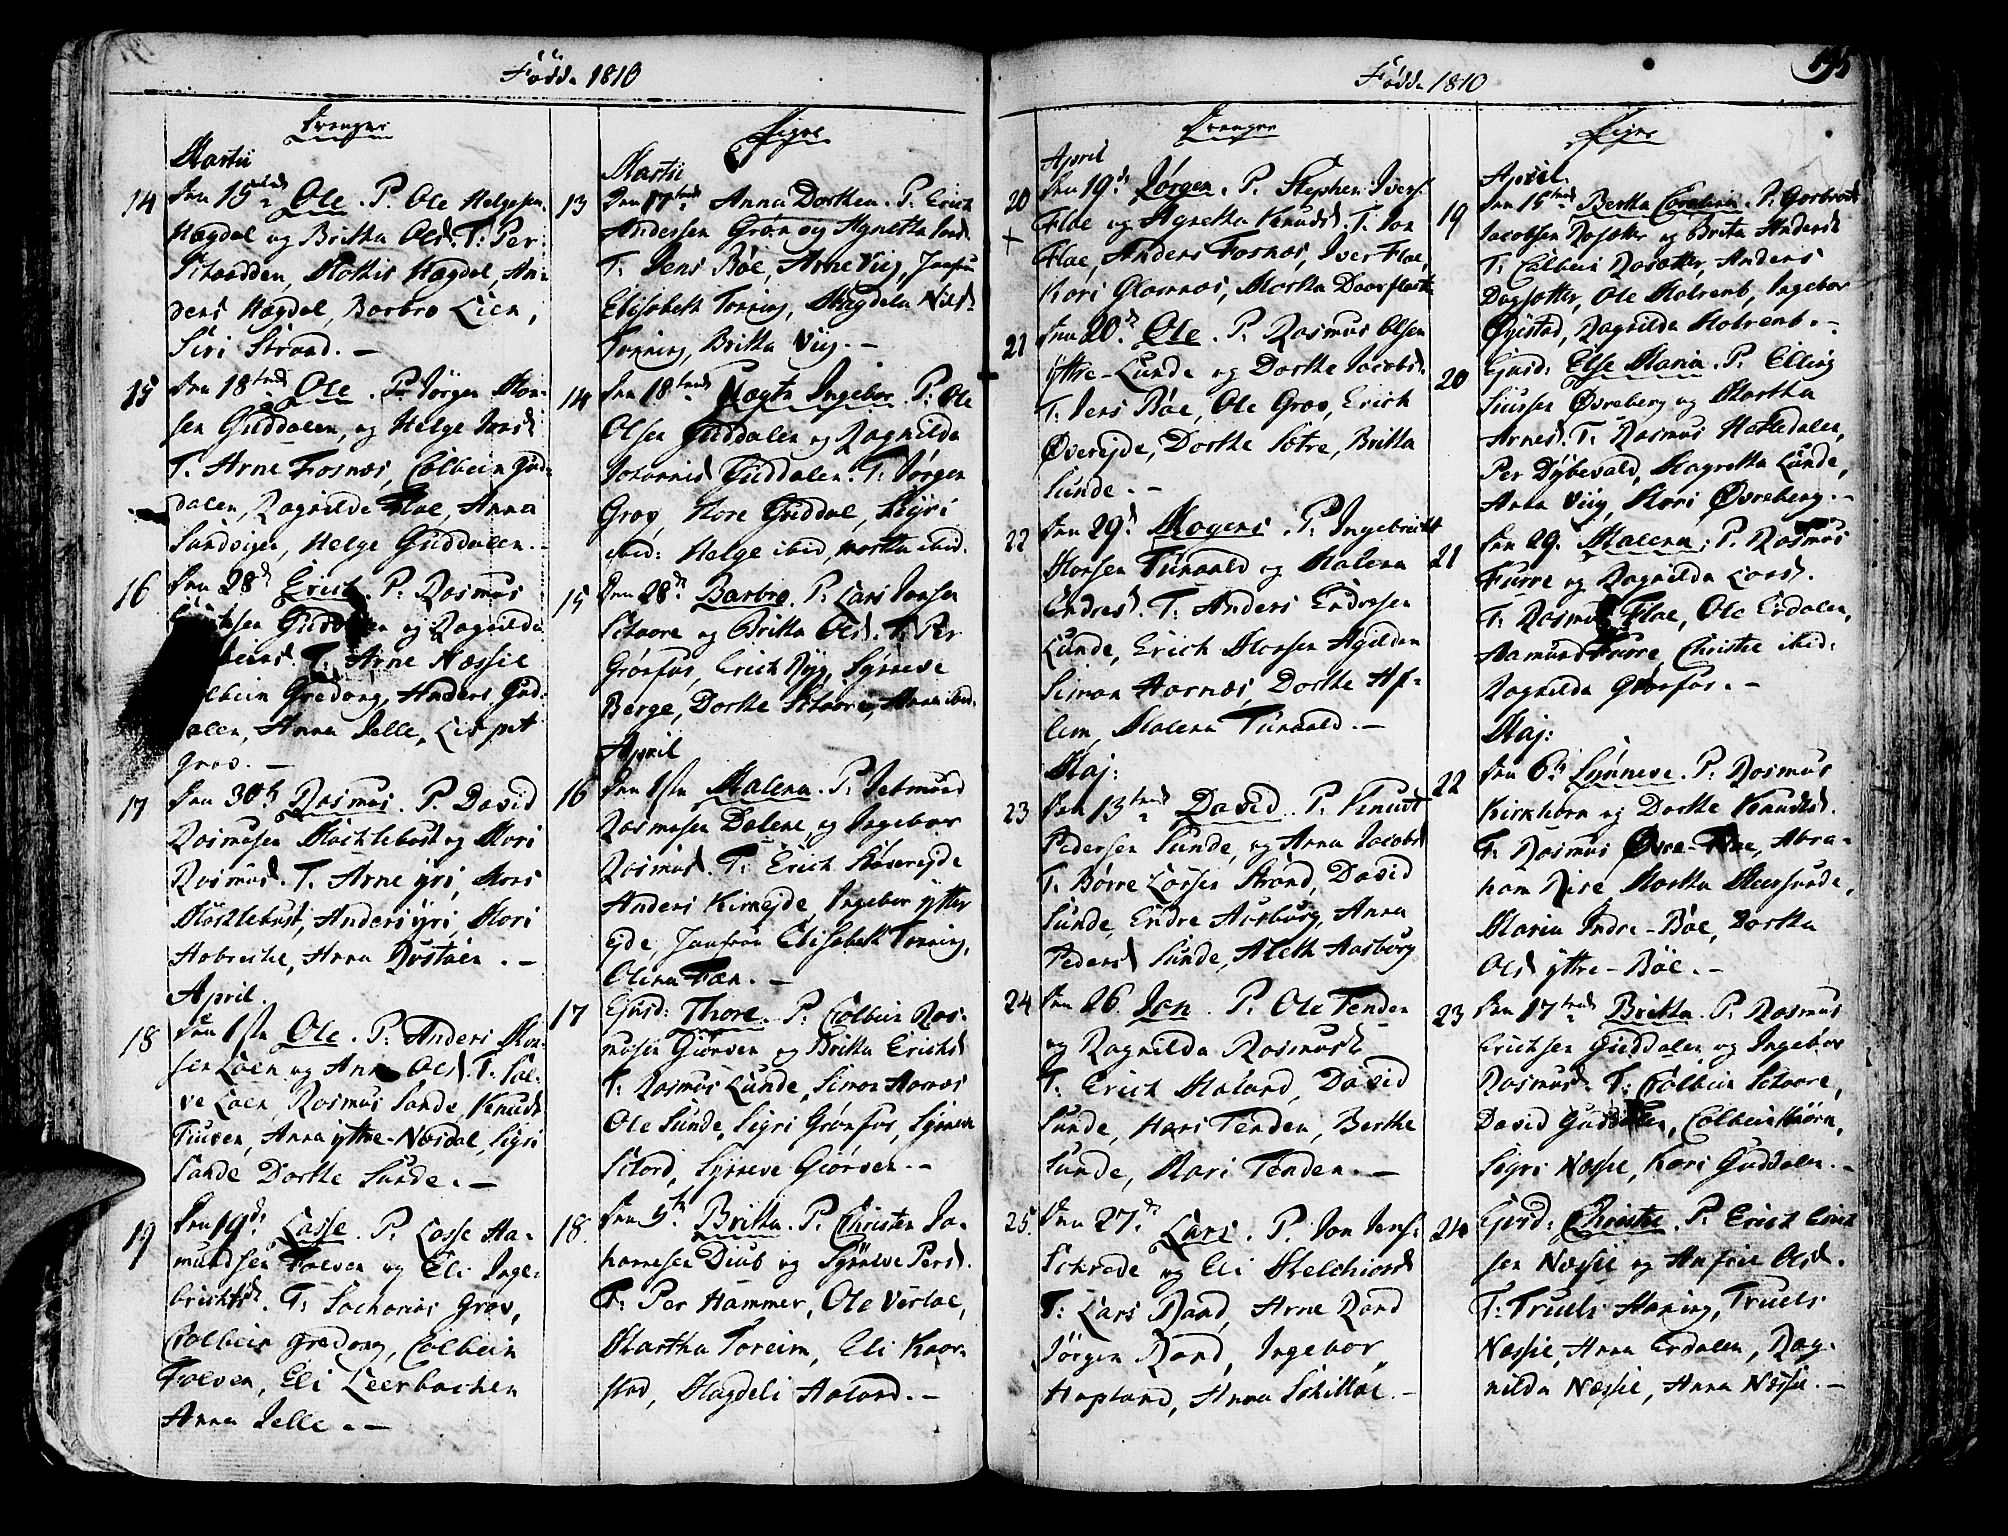 Födde 1810
Drenger
Martii
14 Den 15 Ole. P. Ole Helgesen
Hægdal og Britha Olsd. T: Per
Skaadden, Mathis Hægdal, An-
ders Hægdal, Barbro Lien,
Siri Strand. -
15 Den 18 Ole. P. Jørgen Mon-
sen Guddalen, og Helge Jensd
T. Arne Fosnæs, Colbein Gud-
dalen, Ragnilde Flae, Anna
Sandvigen, Helge Guddalen. -
16 Den 28 Erich. P. Rasmus
Guddalen og Ragnilda
T. Arne Næssie
Colbein Gredung, Anders Gud-
dalen, Anna Jelle, Lispet
Grov. -
17 Den 30 Rasmus. P. David
Rasmusen Mæchlebust og Mari
Rasmusd. T. Arne Yri, Mons
Mæchlebust, Anders Yri, Mari
Aabrecke, Anna Rustøen. -
April.
18 Den 1ste Ole. P. Anders Mon-
sen Loen og Anna Olsd. T. Sal-
ve Loen, Rasmus Sande, Knud
Tiugen, Anna Yttre-Næsdal, Sigri
Sande Dorthe Sunde. -
19 Den 19 Lasse. P. Lasse Aa-
mundsen Folven og Eli Inge-
brichtsd. T: Zacharias Grov,
Colbein Gredung, Colbein
Folven, Eli Leerbachen
Anna Jelle. -
Piger
Martii
13 Den 17 Anna Dorthea. P. Erich
Andersen Grøn og Agnetha
T. Jens Bøe, Arne Viig, Jomfru
Elisabeth Tonning, Magdela Nils-
Tonning, Britha Viig. -
14 Den 18 Magta Ingebor. P. Ole
Olsen Guddalen og Ragnilda
Johannisd Guddalen. T. Jørgen
Grov, More Guddal, Sigri
ibid: Helge ibid, Martha ibid.
15 Den 28 Barbro. P. Lars Jensen
Schaare og Britha Olsd. T. Per
Grønfur, Erich Ryg, Synneve
Berge, Dorthe Schaare, Anna ibid.
April
16 Den 1ste Malena. P. Jetmund
Rasmusen Dalene, og Ingebor
Rasmusd. T. Erich Støvereyde
Anders Kirkeyde, Ingebor ytter
Eyde, Jomfru Elisabeth Tonning,
Olina Fæn. -
17 Ejusd: Thore. P. Colbein Ras-
musen Giørven og Britha Erichsd
T: Rasmus Lunde, Simon Hornæs
Ole Sunde, Sigri Grønfur, Synneve
Schord, Synneve Giørven. -
18. Den 5 Britha. P. Christen Jo-
hannesen Diub og Synneve Persd.
T: Per Hammer, Ole Verlae,
Martha Toreim, Eli Kaar-
stad, Magdeli Aaland. -
Födde 1810
195
Drenger
April
20 Den 19 Jørgen. P. Stephen Ivers.
+ Flae og Agnetha Knudsd. T. Jon
Flae, Anders Fosnæs, Iver Flae,
Kari Glomnæs, Martha Doorfløte
21 Den 20 Ole. P. Rasmus Olsen
Yttre-Lunde og Dorthe Jacobsd.
T. Jens Bøe, Ole Grov, Erich
Øvereyde, Dorthe Sætre, Britha
Sunde. -
22 Den 29 Mogens. P. Ingebricht
Monsen Tunvald og Malena
Endresd. T: Anders Endresen
Lunde, Erich Monsen Agilden
Simon Hornæs, Dorthe Af-
lem, Malena Tunvald. -
Maj:
23 Den 13 David. P. Knud
Pedersen Sunde, og Anna Jacobsd
T. Børre Larsen Strand, David
Sunde, Endre Aasburg, Anna
Pedersd Sunde, Aleth Aasburg
24 Den 26 Jon. P. Ole Tenden
og Ragnilda Rasmusd.
T: Erich Maland, David
Sunde, Hans Tenden, Berthe
Sunde, Mari Tenden. -
25. Den 27 Lars. P. Jon Jens.
Schrede og Eli Melchiorsd
T: Lars Rand, Arne Rand
Jørgen Rand, Ingebor
Hopland, Anna Schillae. -
Piger
April.
19 Den 15 Bertha Cathrina. P. Gerbrand
Jacobsen Rosætter og Brita Andersd
T: Colbein Rosætter, Anders
Dagsætter, Ole Molrenb, Ingebor
Qvistad, Ragnilda Molrenb. -
20 Ejusd: Else Maria. P. Elling
Siursen Øvreberg og Martha
Arnesd. T: Rasmus Hatledalen,
Per Dybevald, Magretha Lunde,
Anna Viig, Mari Øvreberg. -
21 Den 29. Malena. P. Rasmus
Furre og Ragnilda Larsd.
T: Rasmus Flae, Ole Erdalen,
Aamund Furre, Christie ibid:
Ragnilda Grønfur. -
Maj:
22 Den 6 Synneve. P. Rasmus
Kirkhorn og Dorthe Knudsd.
T: Rasmus Øvre-Flae, Abra-
ham Rise, Martha Meersunde,
Maria Indre-Bøe, Dorthe
Olsd Yttre-Bøe. -
23 Den 17 Britha. P. Rasmus
Erichsen Guddalen og Ingebor
Rasmusd. T: Colbein Schaare,
David Guddalen, Colbein Kiørn,
Sigri Næssie, Kari Guddalen. -
24 Ejusd: Christie. P. Erich Erich
sen Næssie og Anfrie Olsd.
T: Truels Haning, Truels
Næssie, Anna Erdalen, Rag-
nilda Næssie, Anna Næssie. -